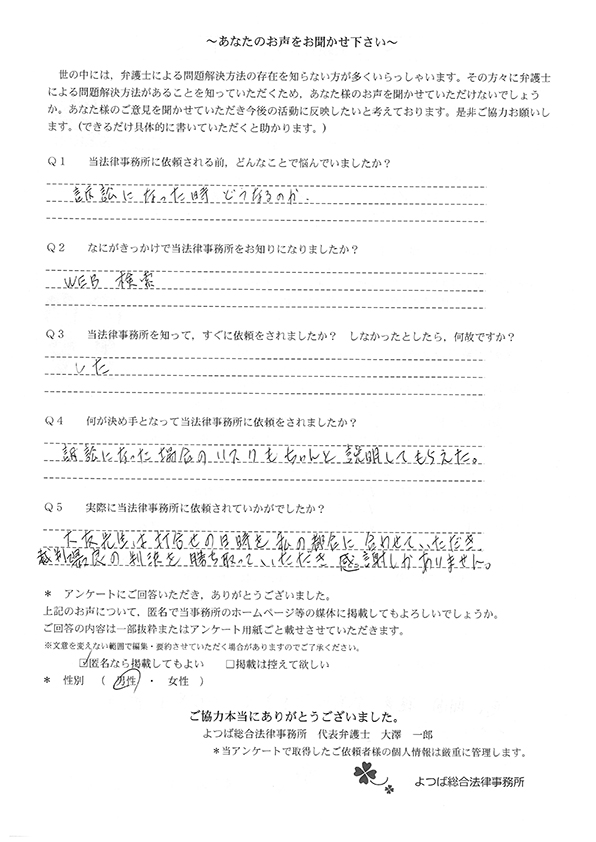 ～あなたのお声をお聞かせ下さい～
世の中には、弁護士による問題解決方法の存在を知らない方が多くいらっしゃいます。その方々に弁護士
による問題解決方法があることを知っていただくため、あなた様のお声を聞かせていただけないでしょう
か。あなた様のご意見を聞かせていただき今後の活動に反映したいと考えております。是非ご協力お願いし
ます。(できるだけ具体的に書いていただくと助かります。)
Q1　当法律事務所に依頼される前，どんなことで悩んでいましたか？
訴訟になった時どうなるのか.
Q2　なにがきっかけで当法律事務所をお知りになりましたか？
WEB 検索
Q3　当法律事務所を知って，すぐに依頼をされましたか？　しなかったとしたら，何故ですか？
した
Q4　何が決め手となって当法律事務所に依頼をされましたか？
訴訟になった場合のリスクもちゃんと説明してもらえた。
Q5　実際に当法律事務所に依頼されていかがでしたか？
先生は打合せの日時を私の都合に合わせていただき、
裁判最良の判決を勝ち取っていただき感謝しかありません。
＊　アンケートにご回答いただき，ありがとうございました。
上記のお声について，匿名で当事務所のホームページ等の媒体に掲載してもよろしいでしょうか。
ご回答の内容は一部抜粋またはアンケート用紙ごと載せさせていただきます。
※文意を変えない範囲で編集・要約させていただく場合がありますのでご了承ください。
☑匿名なら掲載してもよい　□掲載は控えて欲しい
＊　性別　（　男性　・　女性　）
ご協力本当にありがとうございました。
よつば総合法律事務所　代表弁護士　大澤　一郎
＊当アンケートで取得したご依頼者様の個人情報は厳重に管理します。
よつば総合法律事務所